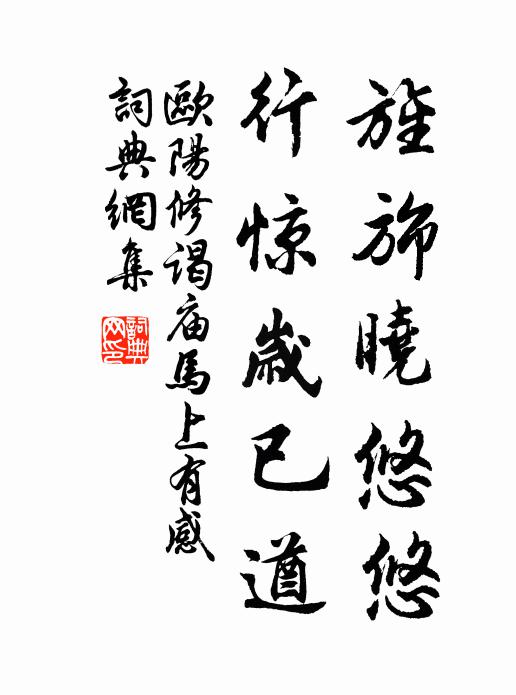 旌旆曉悠悠
行惊歳已遒
歐陽修謁庙馬上有感
詞典網集
詞典网印